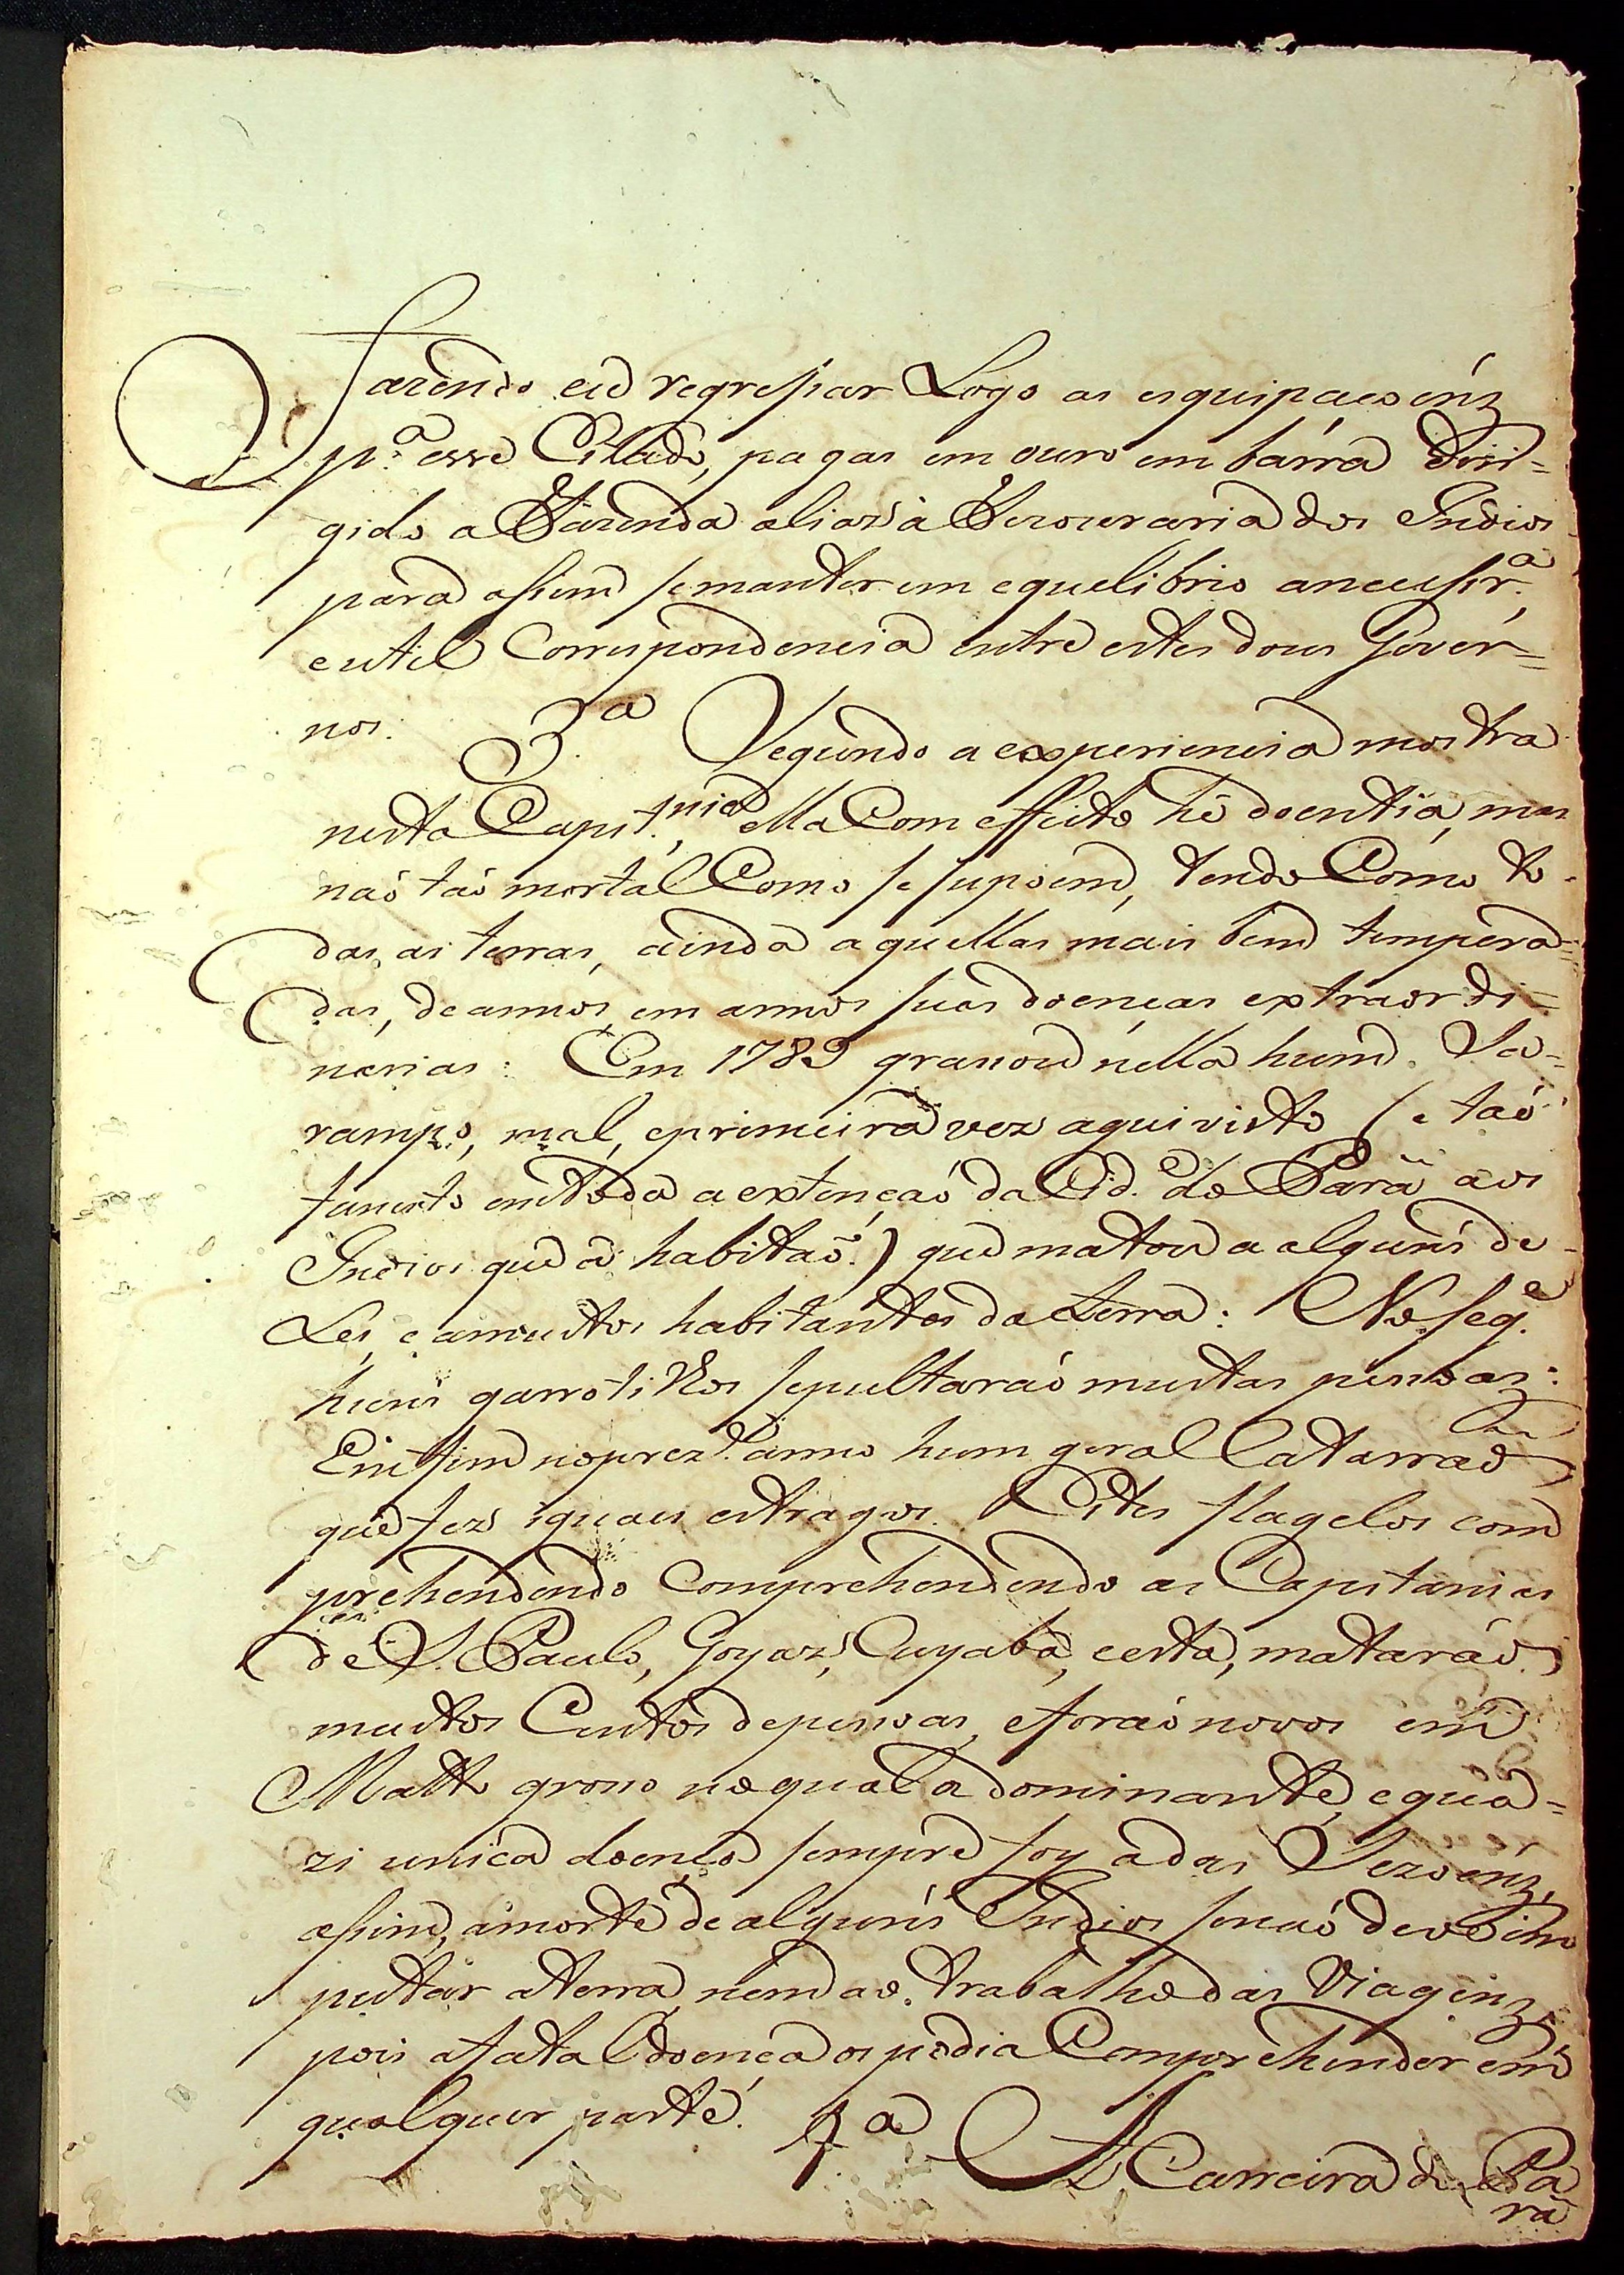 Fazendo eu regressar Logo as esquipaçoens
p.ª esse Estado, pagas em ouro em barra diri=
gido a Fazenda aliaz á Thezouraria dos Indios
para assim semanter em equelibrio anecessr.ª,
eutil Correspondencia entre estes dous Gover=
nos. 3.ª Segundo a experiencia mostra
nesta Capit.nia, ella Com effeito hé doentia, mas
naõ taõ mortal Como se supoem, tendo Como to-
das as terras, ainda aquellas mais bem tempera=
das, de annos, em annos suas doenças extraordi=
narias: Em 1789 grasou nella hum Sa=
rampo, mal, eprimeira vez aqui visto (e taó
funesto emtoda a extençaó da Cid.e do Pará aos
Indios que a habitaõ) que matou a alguns de-
Les, e amuitos habitantes da terra: No seg.e
huns garrotilhos sepultaraó muitas pessoas:
Emfim noprez.te anno hum geral Catarraõ
que fez iguaes estragos. Estes flagelos com
prehendendo Comprehendendo as Capitanias
de S. Paulo, Goyaz, Cuyabá, eesta, mataraó
muitos Centos depessoas, eforaó novos em
Matto groso noqual a dominante, equa=
zi unica doença sempre foy adas Sezoens,
assim, amorte de alguns Indios senaó deve im
putar aterra, nem ao trabalho das Viagens,
pois afatal doença os podia Comprehender em
qualquer parte. 4.ª A Carreira do Pa
rá